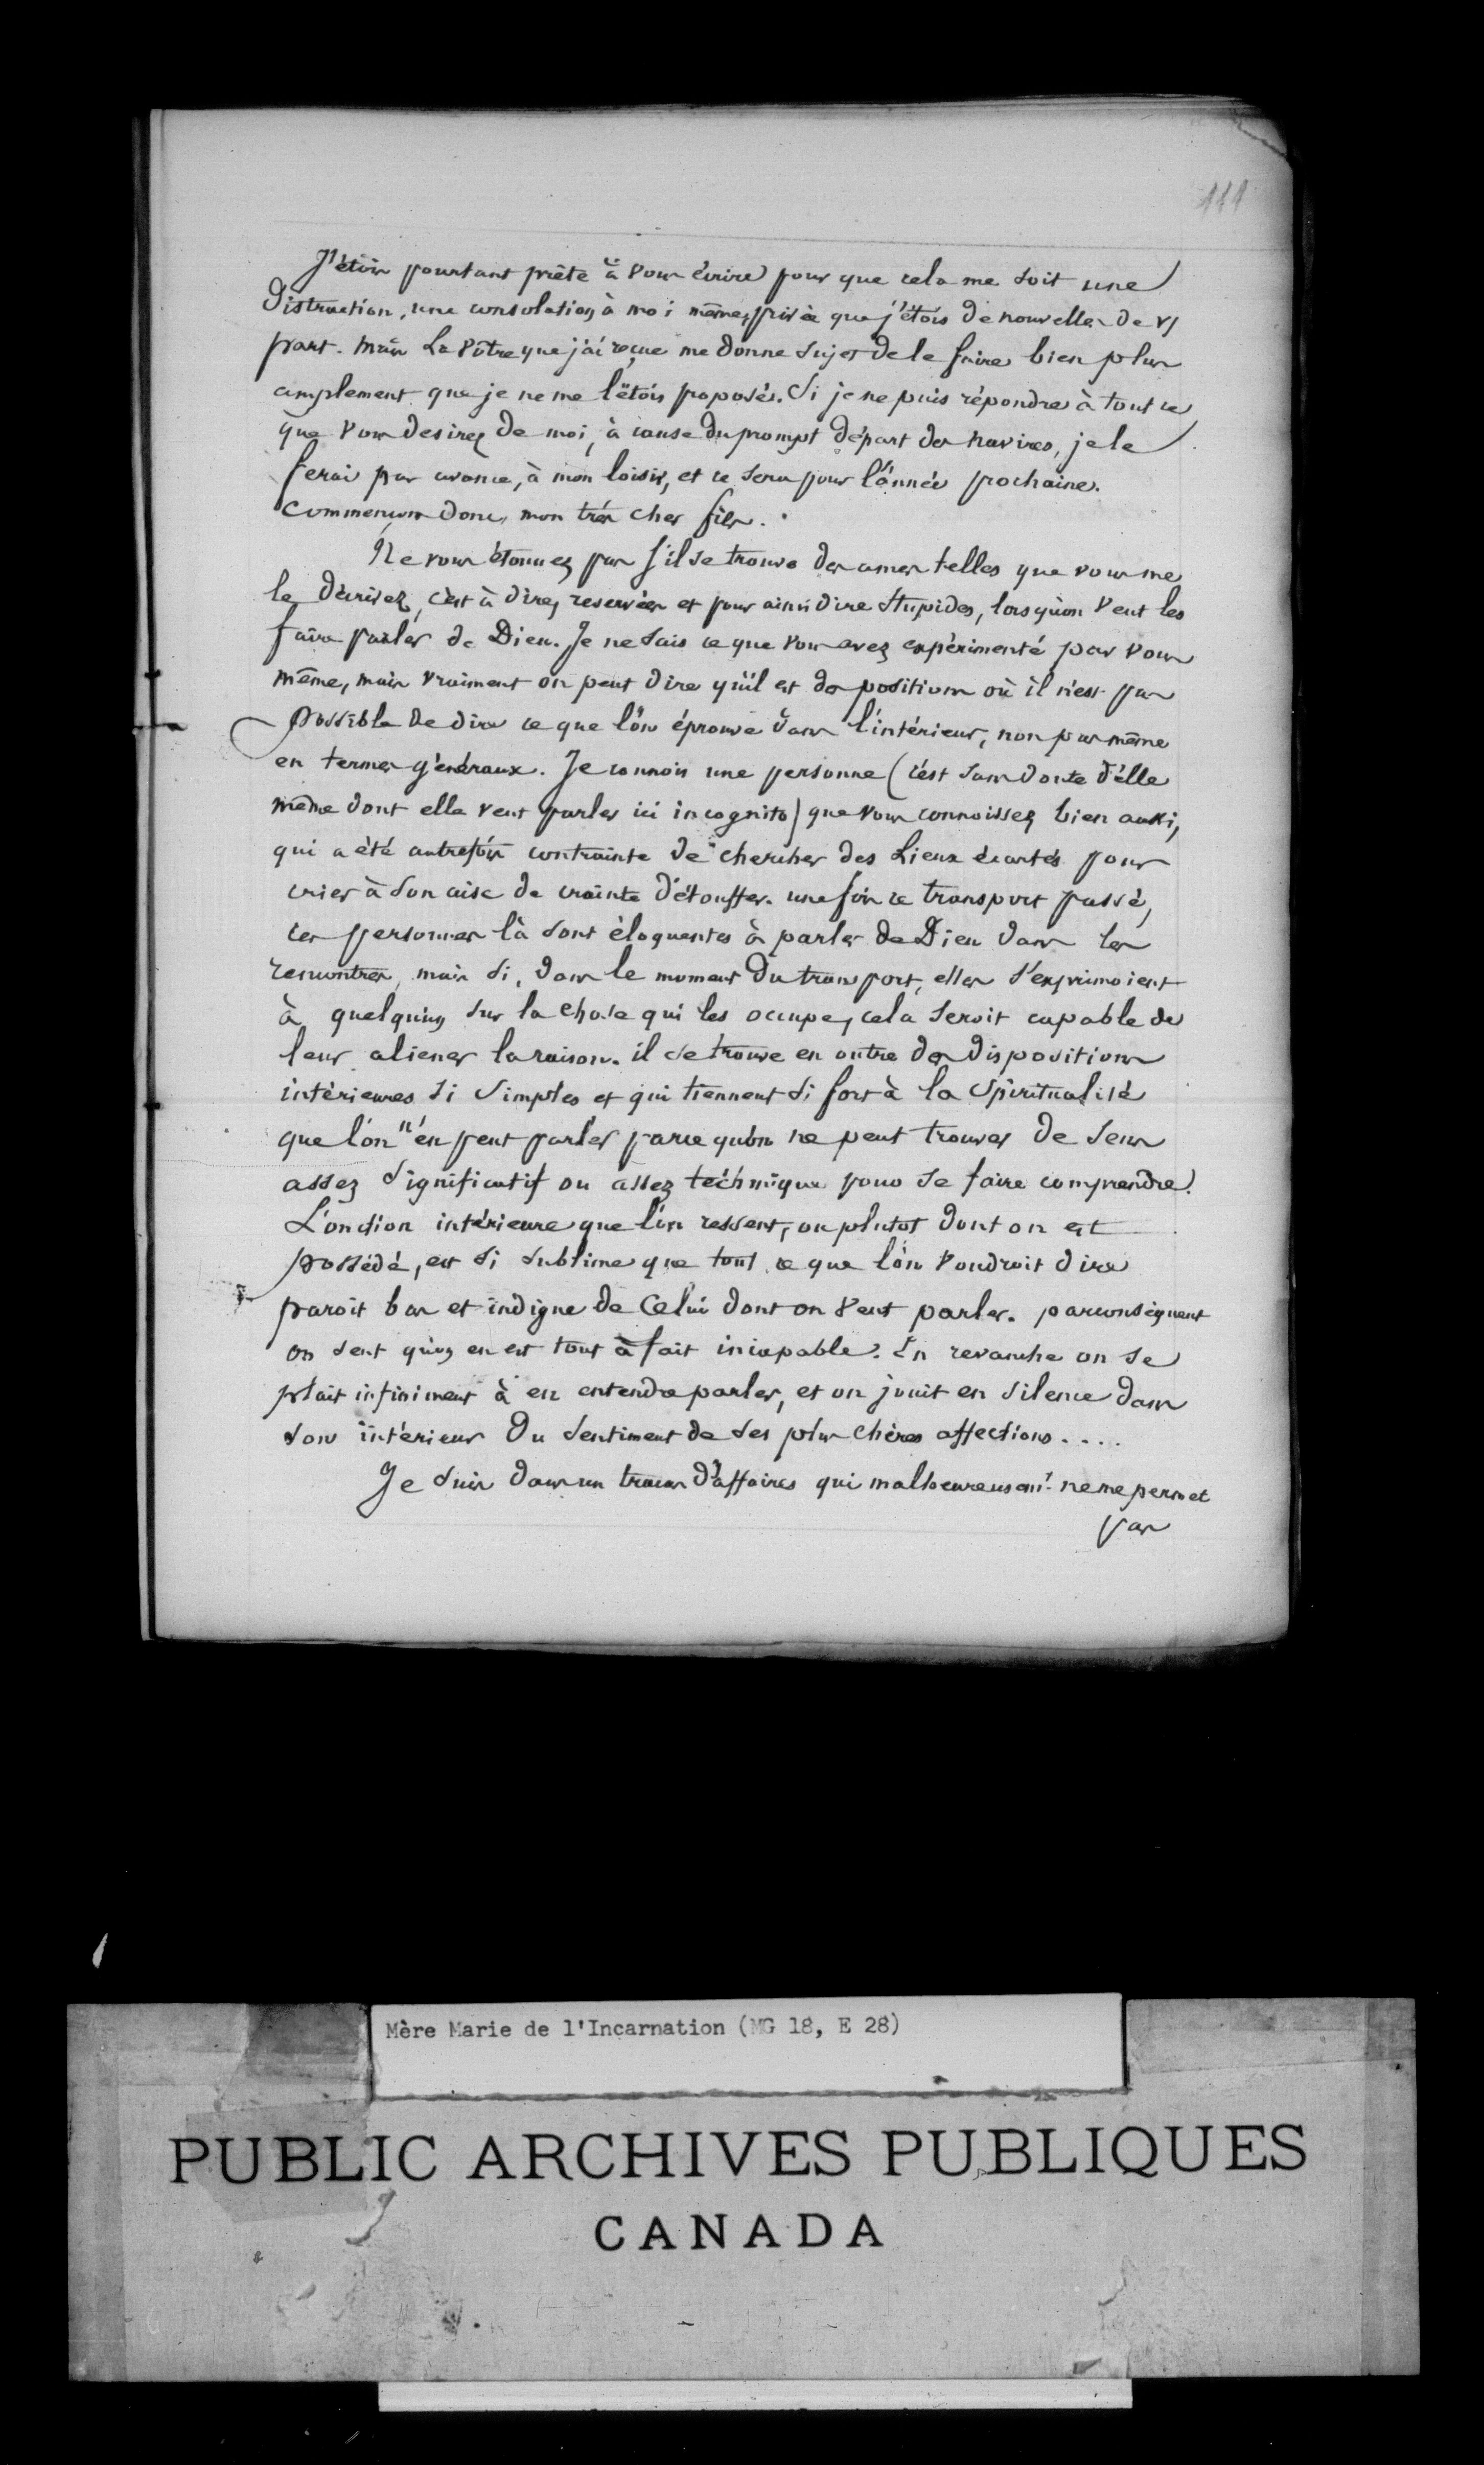 111
J'étois pourtant prête à vous écrire pour que cela me soit une
distraction, une consolation à moi même, privée que j'étois de nouvelles de v/
part. mais La vôtre que j'ai reçue me donne sujet de le faire bien plus
amplement que je ne me l'étois proposés. Si je ne puis répondre à tout ce
que vous desirez de moi, à cause du prompt départ des navires, je le
ferai par avance, à mon loisir, et ce sera pour l'année prochaine.
Commençons donc, mon très cher fils.
Ne vous étonnez pas s'il se trouve des ames telles que vous me
le décrivez, c'est à dire, reservées et pour ainsi dire stupides, lorsqu'on veut les
faire parler de Dieu. Je ne sais ce que vous avez expérimenté par vous
même, mais vraiment on peut dire qu'il est des positions où il n'est pas
possible de dire ce que l'on éprouve dans l'intérieur, non pas même
en termes généraux. Je connois une personne (c'est sans doute d'elle
même dont elle veut parler ici incognito) que vous connoissez bien aussi,
qui a été autrefois contrainte de chercher des Lieux écartés pour
crier à son aise de crainte d'étouffer. une fois ce transport passé,
ces personnes là sont éloquentes à parler de Dieu dans les
rencontres, mais si, dans le moment du transport, elles s'exprimoient
à quelqu'un sur la chose qui les occupe, cela seroit capable de
leur aliener la raison. il se trouve en outre des dispositions
intérieures si simples et qui tiennent si fort à la Spiritualité
que l'on n'en peut parler parce qu'on ne peut trouver de sens
assez significatif ou assez téchnique pour se faire comprendre.
L'onction intérieure que l'on ressent, ou plutot dont on est
possédé, est si sublime que tout ce que l'on voudroit dire
paroit bas et indigne de Celui dont on veut parler. parconséquent
on sent qu'on en est tout à fait incapable. En revanche on se
plait infiniment à en entendre parler, et on jouit en silence dans
son intérieur du sentiment de ses plus chères affections....
Je suis dans un tracas d'affaires qui malheureusemt. ne me permet
pas
Mère Marie de l'Incarnation (MG 18, E 28)
PUBLIC ARCHIVES PUBLIQUES
CANADA